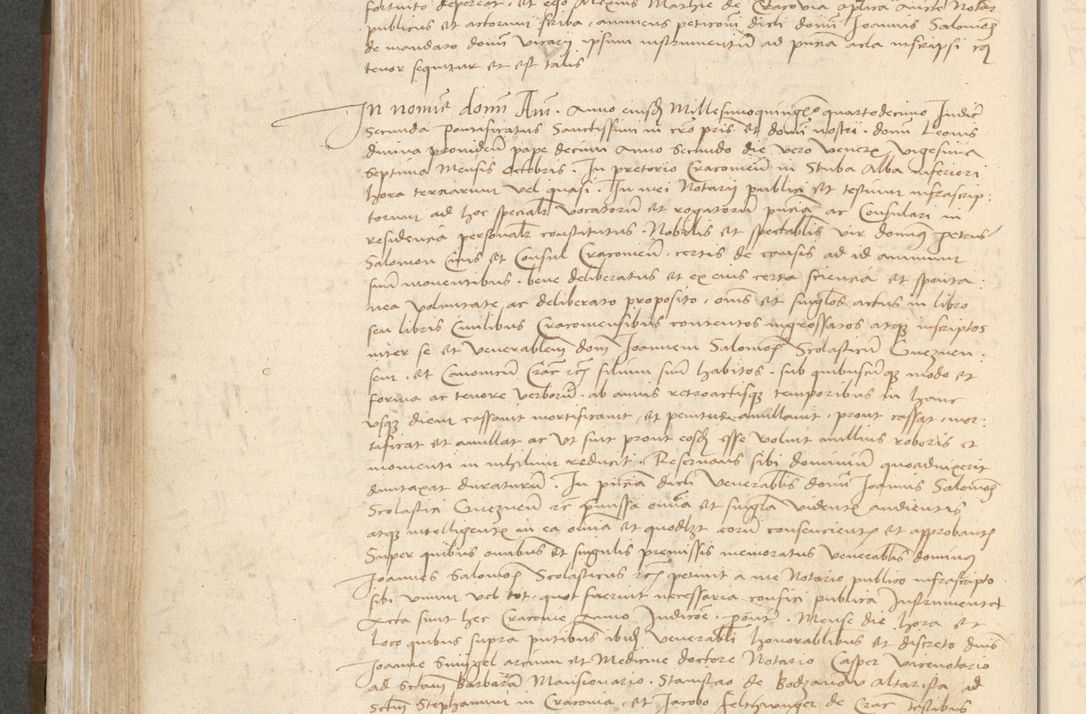 fortuito depereat, et ego Alexius Mathie de Cracovia aplica aucte Notar
publicus et actorum scriba, annuens peticoni dicti domi Joannis Salomoͫ
de mandato domi vicarij ipsum instrumentum ad pntia acta inscripsi cuj
tenor sequitur et est talis
In nomie domi Am. Anno eiusdͫ Millesimoquingeͫo quartodecimo Indicͫ
Secunda Pontificatus Sanctissimi in cro pris et domi nostri. domi Leonis
divina providentia pape decimi anno Secundo die vero veneris vigesima
septima Mensis Octobris. In pretorio Cracoviensi in Stuba Alba inferiori
hora terciarum vel quasi. In mei Notarij publici et testium infrascrip:
torum ad hoc specialr vocatorum et rogatorum pntia ac Consulari in
residencia personalr constitutus Nobilis et spectabilis vir dominus Petrus
Salomon Civis et Consul Cracovien. certis de causis ad id animum
suum moventibus. bene deliberatus et ex eius certa sciencia et sponta:
nea voluntate ac deliberato proposito, omes et singlos actus in libro
seu libris Civilibus Cracoviensibus contentos ingrossatos atque inscriptos
inter se et venerabilem domi Joannem Salomoͫ Scolasticum Gneznen:
sem. et Canonicum Crac rc filium suum habitos. sub quibuscunque modo et
forma ac tenore verborum. ab annis retroactisque temporibus in hanc
usque diem cassavit mortificavit, et penitus annullavit, prout cassat, mor:
tificat et annullat ac ut sint prout eosdͫ esse voluit nullius roboris et
momenti in nihilum reducit. Reservans sibi dominium quoadvixerit
duntaxat duraturum. In pntia dicti venerabilis domi Joannis Salomoͫ
Scolastici Gneznen rc pmissa omia et singla videntis audientis
atque intelligentis in ea omia et quodlzt eorum consencientis et approbantis
Super quibus omnibus et singulis premissis memoratus venerablis dominus
Joannes Salomoͫ Scolasticus rc petivit a me Notario publico infrascripto
sibi unum vel tot, quot fuerint necessaria confici publica Instrumenta
Acta sunt hec Cracovie Anno Indicoͤe, pont. Mense die hora et
Loco quibus supra pntibus ibidͫ venerabili honorabilibus et discreto dnis
Joanne Smigel arcium et Medicine doctore Notario Casper vicenotario
ad sctam Barbaram Mansionario. Stanislao de Bodzanow Altarista ad
Sctum Stephanum in Cracovia, et Jacobo Felthwinger de Crac testibus